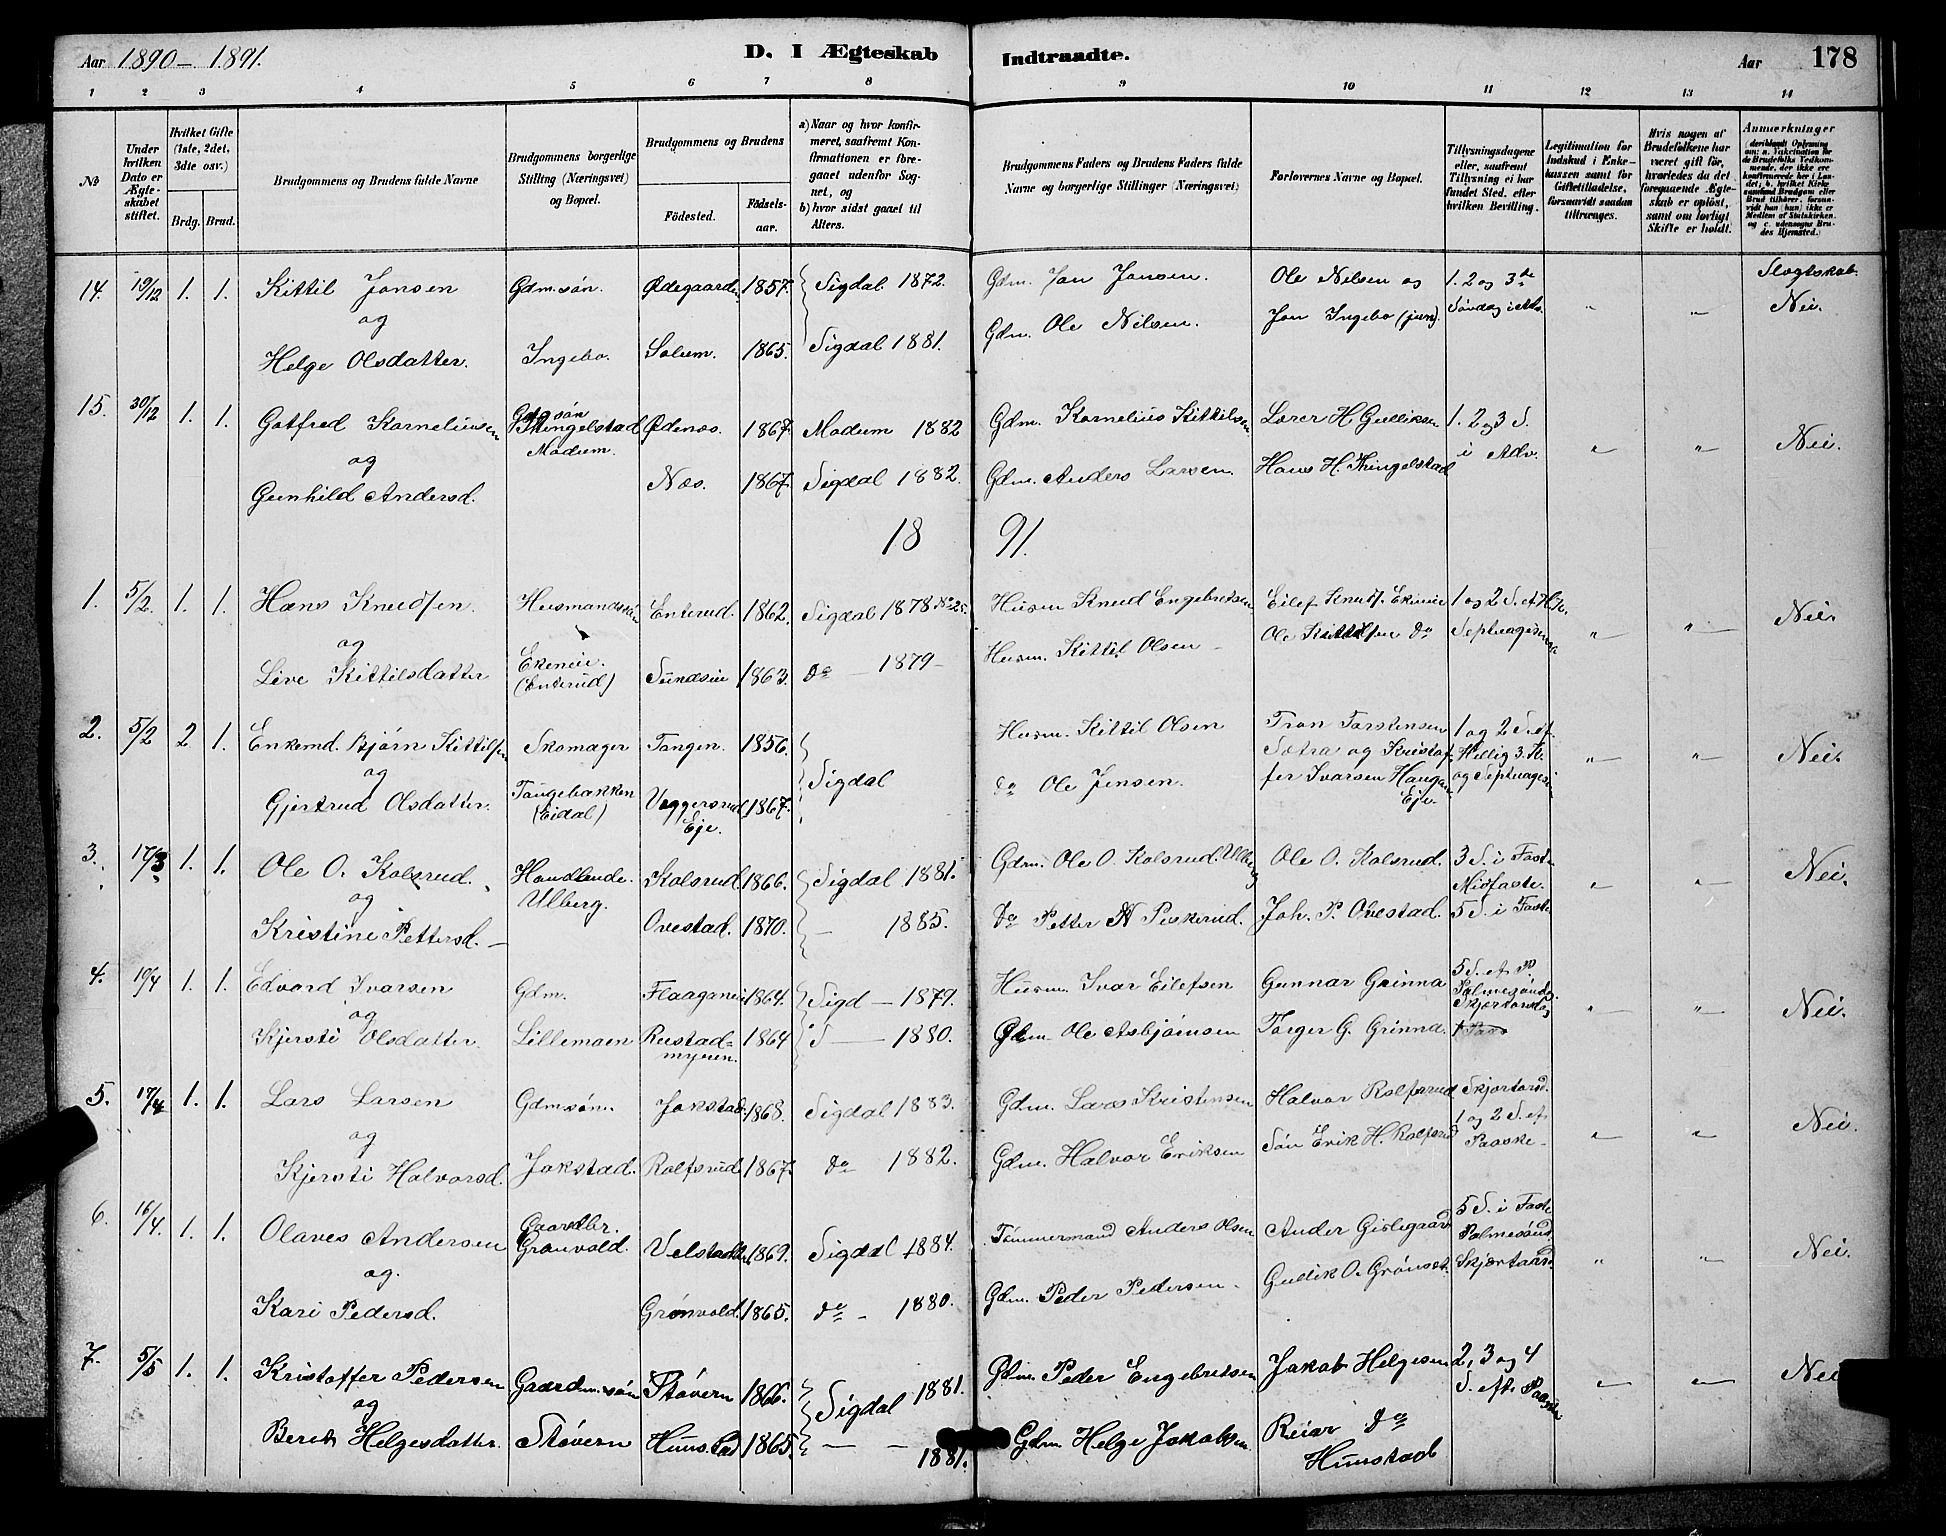 Aar 1890 – 1891.
D. I Ægteskab Indtraadte.
Aar 178
1 2 3 4 5 6 7 8 9 10 11 12 13 14
№
Under hvilken Dato er Ægteskabet stiftet.
Hvilket Gifte (1ste, 2det, 3die osv.)
Brdg. Brud.
Brudgommens og Brudens fulde Navne
Brudgommens borgerlige Stilling (Næringsvei) og Bopæl.
Brudgommens og Brudens
Fødested. Fødselsaar.
a) Naar og hvor konfirmeret, saafremt Konfirmationen er foregaaet udenfor Sognet, og
b) hvor sidst gaaet til Alters.
Brudgommens Faders og Brudens Faders fulde Navne og borgerlige Stillinger (Næringsvei)
Forlovernes Navne og Bopæl.
Tillysningsdagene eller, saafremt Tillysning ei har fundet Sted, efter hvilken Bevilling.
Legitimation for Indskud i Enkekassen samt for Giftetilladelse, forsaavidt saadan tiltrænges.
Hvis nogen af Brudefolkene har været gift før, hvorledes da det foregaaende Ægteskab er opløst, samt om lovligt Skifte er holdt.
Anmærkninger
14. 19/12 1. 1. Kittil Jonsen Gdm.søn. Ødegaarden 1857. Sigdal 1872. Gdm. Jon Jonsen. Ole Nilsen og 1. 2 og 3de Slegtskab.
og Gdm. Ole Nilsen. Jon Ingebo (jun). Søndag i Adv. " " Nei.
Helge Olsdatter. Ingebo. Solum. 1865. Sigdal 1881.
15. 30/12 1. 1. Gotfred Korneliussen Gdm.søn Thingelstad Modum. Ødenæs. 1867. Modum 1882 Gdm. Kornelius Kittilsen Lærer H. Gulliksen 1. 2 og 3 S.
og Gdm. Anders Larsen. Hans H. Thingelstad i Adv. " " Nei.
Gunhild Andersd. Næs. 1867. Sigdal 1882.
18 91.
1. 5/2. 1. 1. Hans Knudsen. Husmandssøn Enterud. 1862. Sigdal 1878 Husm Knud Engebretsen 1 og 2 S. ef. H.3K.
og Husm. Kittil Olsen – Ole Kittilsen do Septuagesima " " Nei.
Live Kittilsdatter Ekeneie. (Enterud) 1863. do – 1879 –
2. 5/2 2 1. Enkemd. Bjørn Kittilsen Skomager Tangen. 1856. Husm. Kittil Olsen Tron Torstensen 1 og 2 S. ef.
og Sigdal do Ole Jensen. Sætra og Kristoffer Ivarsen Haugan Eje. Hellig 3. K. og Septuages. " " Nei.
Gjertrud Olsdatter. Tangebakken (Eidal) Veggersrud Eje. 1867.
3. 17/3 1. 1. Ole O. Kolsrud. Handlende. Ulberg. Kolsrud 1866. Sigdal 1881. Gdm. Ole O. Kolsrud. Ulberg Ole O. Kolsrud. 3 S. i Fast.
og Midfaste. " " Nei.
Kristine Pettersd. – Ovestad. 1870. – 1885. do Petter N Peskerud. Joh. P. Ovestad. 5 S. i Faste
4. 10/4 1. 1. Edvard Ivarsen Gdm. 1864. Sigd – 1879. Husm. Ivar Eilefsen Gunnar Grinna 5 S. ef.
og Palmesøndag. Skjærtorsdag " " Nei.
Kjersti Olsdatter. Lillemoen Rustadmyren. 1864 – 1880. Gdm. Ole Asbjørnsen Torger G. Grinna.
5. 17/4 1. 1. Lars Larsen Gdm.søn. Jokstad. 1868. Sigdal 1883. Gdm. Lars Kristensen Halvor Rolfsrud Skjærtorsd.
og 1 og 2 S. ef. Paaske. " " Nei.
Kjersti Halvorsd. Jokstad. Rolfsrud 1867. do 1882. Gdm. Halvor Eriksen Søn Erik H. Rolfsrud
6. 16/4 1. 1. Olaves Andersen Gaardbr. Grønvold. 1869. Sigdal 1884. Tømmermand Anders Olsen 5 S. i Faste
og. Palmesønd. " " Nei.
Kari Pedersd. Grønvold. 1865. do – 1880. Gdm. Peder Pedersen – Gullik O. Skjærtorsd.
7. 5/5 1. 1. Kristoffer Pedersen Gaardm.søn Støvern 1866. Sigdal 1881. Gdm Peder Engebretsen Jakob Helgesen 2, 3 og 4
og S. eft. Paaske " " Nei
Berit Helgesdatter. Støvern Hunstad 1865. – – 1881. Gdm. Helge Jakobsen Reiar do Hunstad